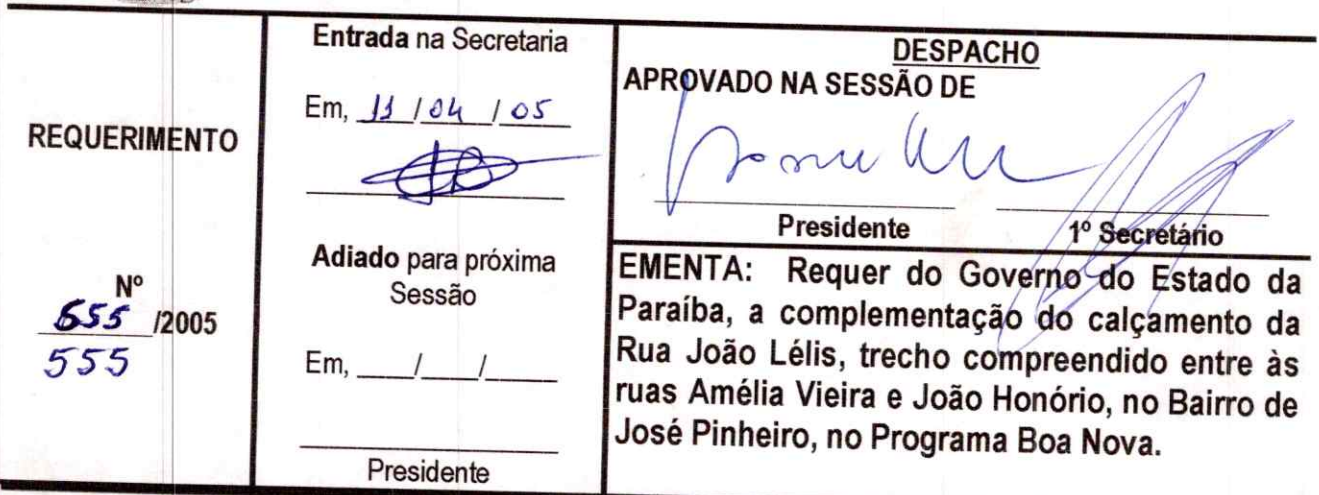 REQUERIMENTO
Nº
555 /2005
555
Entrada na Secretaria
Em, 11 / 04 / 05
Adiado para próxima
Sessão
Em, ____/____/_____
Presidente
DESPACHO
APROVADO NA SESSÃO DE
Presidente 1º Secretário
EMENTA: Requer do Governo do Estado da
Paraíba, a complementação do calçamento da
Rua João Lélis, trecho compreendido entre às
ruas Amélia Vieira e João Honório, no Bairro de
José Pinheiro, no Programa Boa Nova.